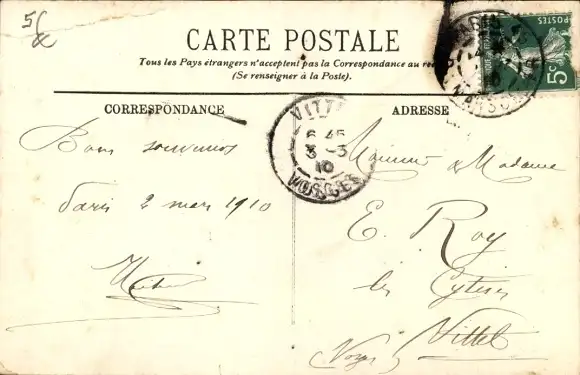 5
CARTE POSTALE
Tous les Pays étrangers n'acceptent pas la Correspondance au
(Se renseigner à la Poste).
CORRESPONDANCE
ADRESSE
POSTES
5c
VITTEL
6 45
3 - 3
10
VOSGES
Bons souvenirs
Paris 2 mars 1910
Monsieur & Madame
E. Roy
les Cytises
Vittel
(Vosges)